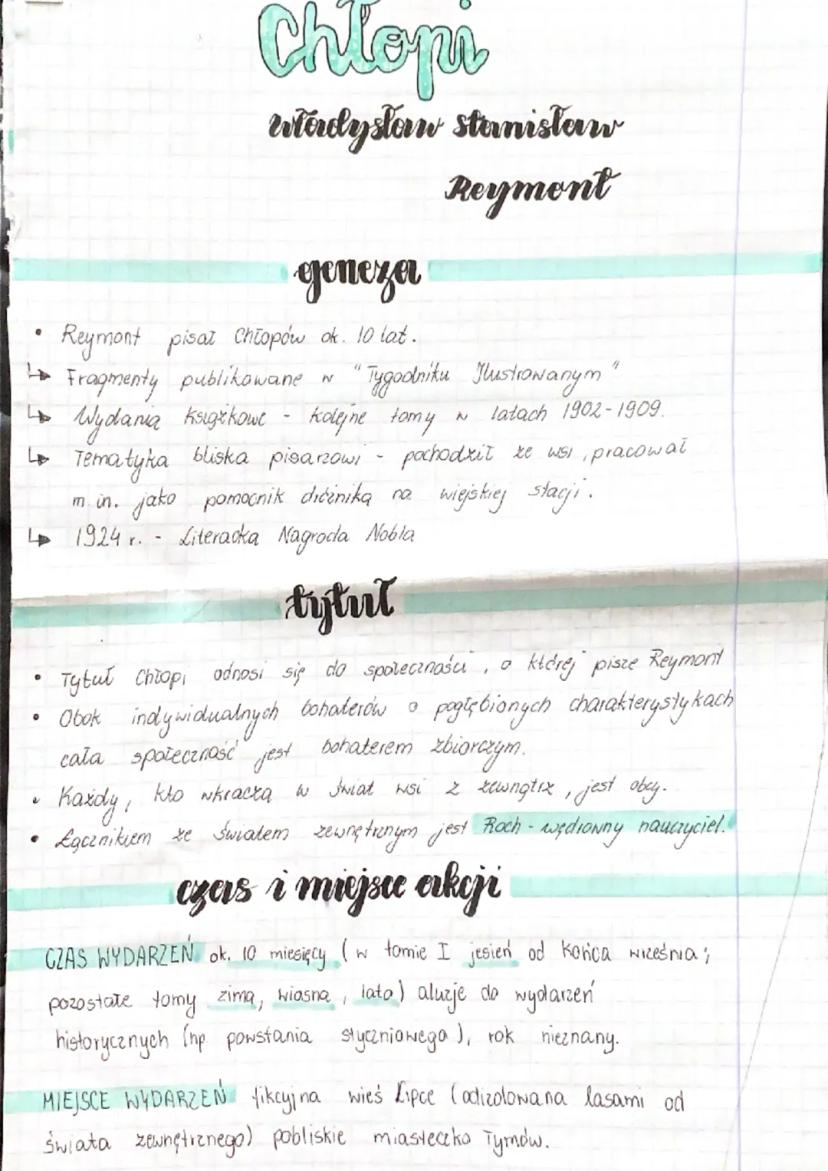 Chłopi
Władysław Stanisław
Reymont
geneza
• Reymont pisał Chłopów ok. 10 lat.
↳ Fragmenty publikowane w "Tygodniku Ilustrowanym"
↳ Wydania książkowe - kolejne tomy w latach 1902-1909.
↳ Tematyka bliska pisarzowi - pochodził ze wsi, pracował
m.in. jako pomocnik dróżnika na wiejskiej stacji.
↳ 1924 r. - Literacka Nagroda Nobla
tytuł
• Tytuł Chłopi odnosi się do społeczności, o której pisze Reymont
• Obok indywidualnych bohaterów o pogłębionych charakterystykach
cała społeczność jest bohaterem zbiorczym.
• Każdy, kto wkracza w świat wsi z zewnątrz, jest obcy.
• Łącznikiem ze światem zewnętrznym jest Roch - wędrowny nauczyciel.
czas i miejsce akcji
CZAS WYDARZEŃ ok. 10 miesięcy (w tomie I jesień od końca września;
pozostałe tomy zima, wiosna, lato) aluzje do wydarzeń
historycznych (np powstania styczniowego), rok nieznany.
MIEJSCE WYDARZEŃ fikcyjna wieś Lipce (odizolowana lasami od
świata zewnętrznego) pobliskie miasteczko Tymów.